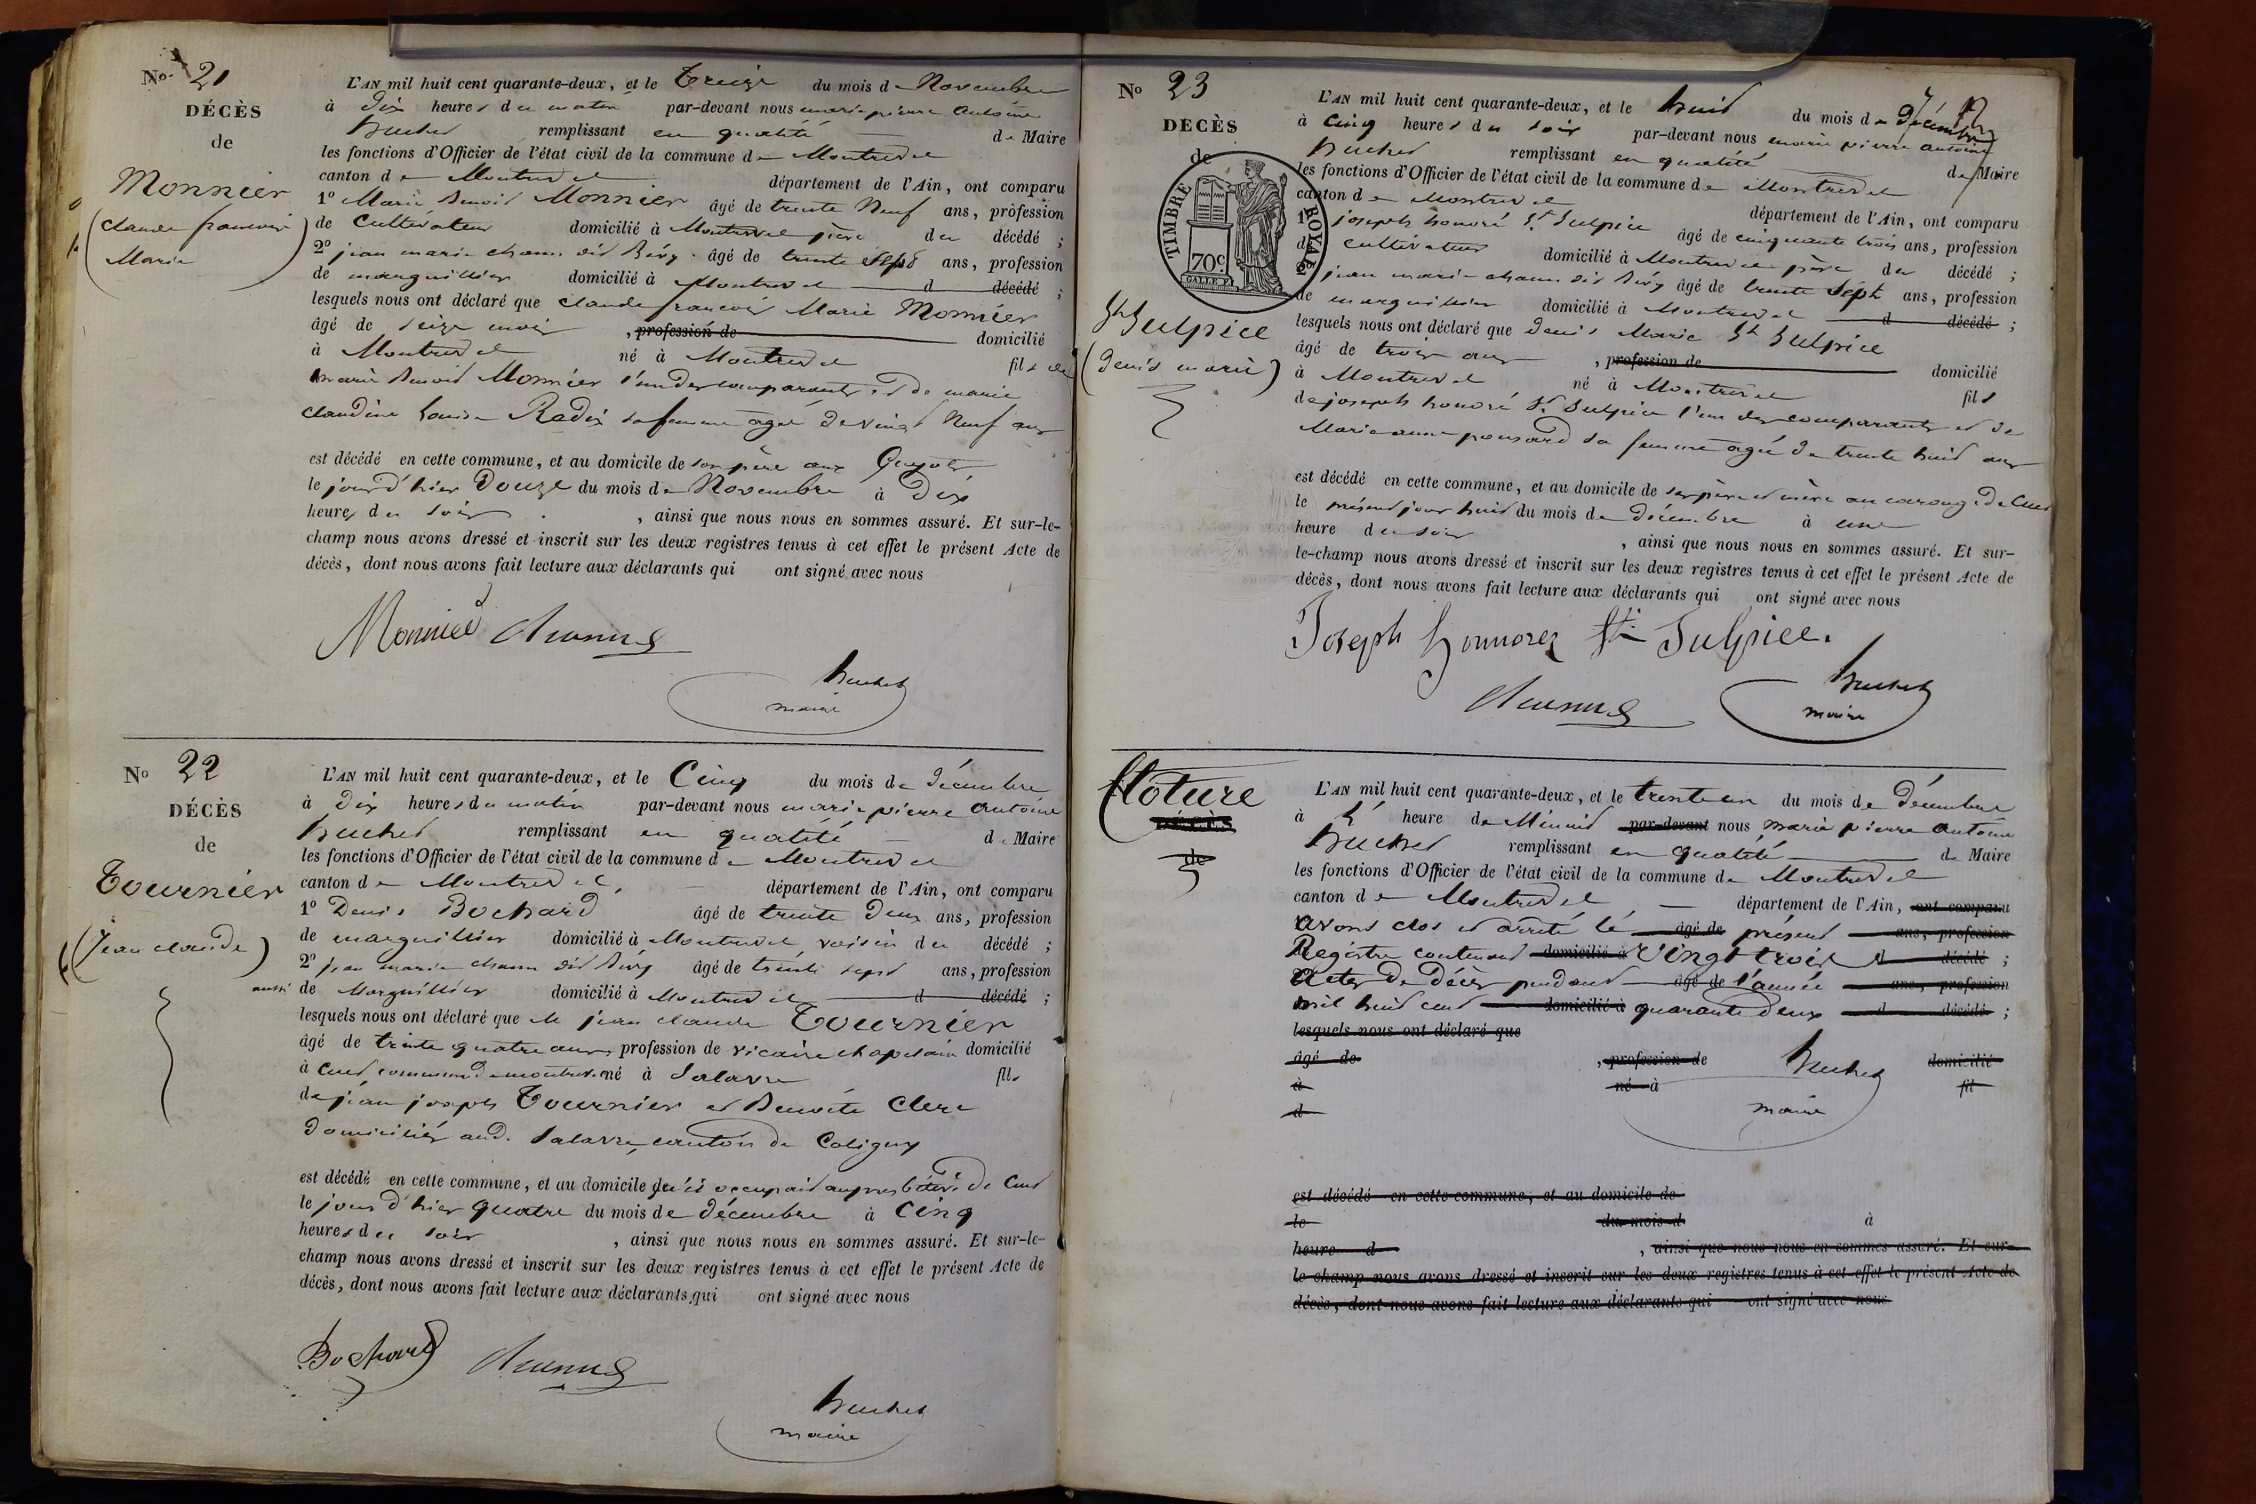 No. 21
DÉCÈS
de
Monnier
(claude francois
Marie)
L'AN mil huit cent quarante-deux, et le treize du mois de Novembre
à dix heures du matin par-devant nous marie pierre antoine
huchet remplissant en qualité de Maire
les fonctions d'Officier de l'état civil de la commune de Montrevel
canton de Montrevel département de l'Ain, ont comparu
1º Marie Benoit Monnier âgé de trente Neuf ans, profession
de Cultivateur domicilié à Montrevel père du décédé ;
2º jean marie chanu dit Bévy âgé de trente sept ans, profession
de marguillier domicilié à Montrevel d décédé ;
lesquels nous ont déclaré que claude francois Marie Monnier
âgé de seize mois , profession de domicilié
à Montrevel né à Montrevel fils de
marie Benoit Monnier l'un des comparants et de marie
claudine Louise Radix sa femme agée de vingt Neuf ans
est décédé en cette commune, et au domicile de son père aux
le jour d'hier Douze du mois de Novembre à Dix
heures du soir , ainsi que nous nous en sommes assuré. Et sur-le-
champ nous avons dressé et inscrit sur les deux registres tenus à cet effet le présent Acte de
décès, dont nous avons fait lecture aux déclarants qui ont signé avec nous
Monnier
huchet
maire
No 22
DÉCÈS
de
Tournier
(Jean claude)
L'AN mil huit cent quarante-deux, et le Cinq du mois de décembre
à dix heures du matin par-devant nous marie pierre antoine
huchet remplissant en qualité de Maire
les fonctions d'Officier de l'état civil de la commune de Montrevel
canton de Montrevel, département de l'Ain, ont comparu
1º Denis Bochard âgé de trente deux ans, profession
de marguillier domicilié à Montrevel voisin du décédé ;
2º jean marie chanu dit Bévy âgé de trente sept ans, profession
aussi de Marguillier domicilié à Montrevel d décédé ;
lesquels nous ont déclaré que jean claude Tournier
âgé de trente quatre ans, profession de vicaire chapelain domicilié
à Cuet commune de montrevel né à Salavre fils
de jean joseph Tournier et Benoite Clerc
domiciliés aud. Salavre, canton de Coligny
est décédé en cette commune, et au domicile qu'il occupait au presbitère de Cuet
le jour d'hier quatre du mois de décembre à Cinq
heures du soir , ainsi que nous nous en sommes assuré. Et sur-le-
champ nous avons dressé et inscrit sur les deux registres tenus à cet effet le présent Acte de
décès, dont nous avons fait lecture aux déclarants qui ont signé avec nous
Bochard
huchet
maire
No 23
DECÈS
de
TIMBRE ROYAL
70c
St Sulpice
(denis marie)
L'AN mil huit cent quarante-deux, et le huit du mois de décembre
à cinq heures du soir par-devant nous marie pierre antoine
huchet remplissant en qualité de Maire
les fonctions d'Officier de l'état civil de la commune de Montrevel
canton de Montrevel département de l'Ain, ont comparu
1º joseph honoré St Sulpice âgé de cinquante trois ans, profession
de cultivateur domicilié à Montrevel père du décédé ;
2º jean marie chanu dit Bévy âgé de trente sept ans, profession
de marguillier domicilié à Montrevel d décédé ;
lesquels nous ont déclaré que denis Marie St Sulpice
âgé de trois ans , profession de domicilié
à Montrevel né à Montrevel fils
de joseph honoré St Sulpice l'un des comparants et de
Marie anne ponsard sa femme agée de trente huit ans
est décédé en cette commune, et au domicile de ses père et mère au carouge de Cuet
le présent jour huit du mois de décembre à une
heure du soir , ainsi que nous nous en sommes assuré. Et sur-
le-champ nous avons dressé et inscrit sur les deux registres tenus à cet effet le présent Acte de
décès, dont nous avons fait lecture aux déclarants qui ont signé avec nous
Joseph honnorez St Sulpice.
huchet
maire
Cloture
DÉCÈS
de
L'AN mil huit cent quarante-deux, et le trente un du mois de décembre
à heure de Minuit par-devant nous marie pierre antoine
huchet remplissant en qualité de Maire
les fonctions d'Officier de l'état civil de la commune de Montrevel
canton de Montrevel département de l'Ain, ont comparu
avons clos et arrêté le âgé de présent ans, profession
Registre contenant domicilié à vingt trois d décédé ;
Actes de Décès pendant âgé de l'année ans, profession
mil huit cent domicilié à quarante deux d décédé ;
lesquels nous ont déclaré que
âgé de , profession de domicilié
à né à fil
d
huchet
maire
est décédé en cette commune, et au domicile de
le du mois d à
heure d , ainsi que nous nous en sommes assuré. Et sur-
le-champ nous avons dressé et inscrit sur les deux registres tenus à cet effet le présent Acte de
décès, dont nous avons fait lecture aux déclarants qui ont signé avec nous